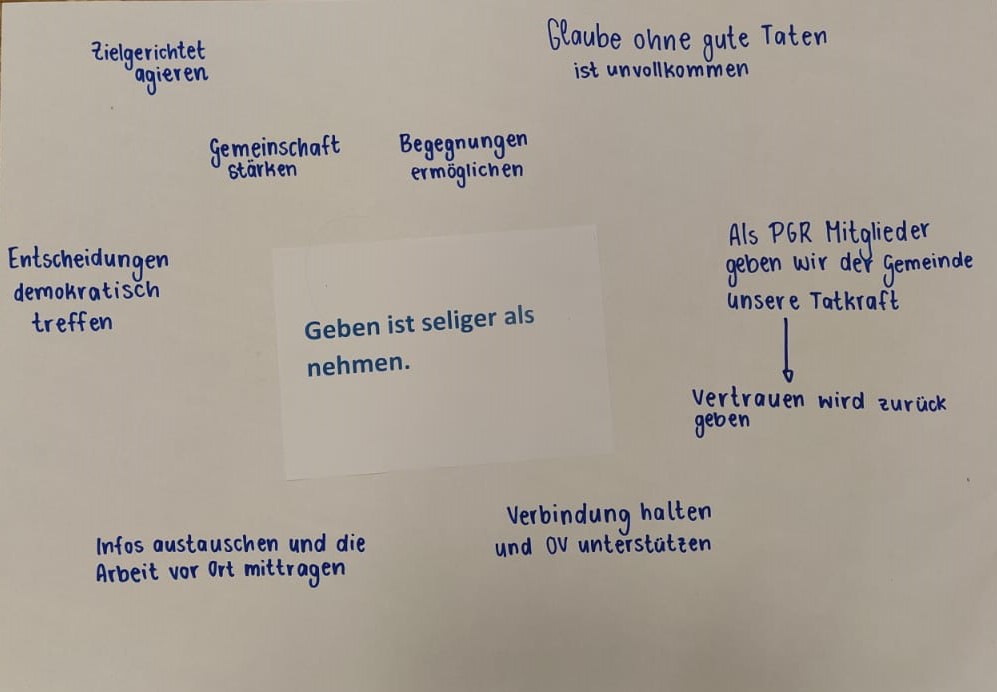 Zielgerichtet
agieren
Glaube ohne gute Taten
ist unvollkommen
Gemeinschaft
stärken
Begegnungen
ermöglichen
Entscheidungen
demokratisch
treffen
Geben ist seliger als
nehmen.
Als PGR Mitglieder
geben wir der Gemeinde
unsere Tatkraft
Vertrauen wird zurück
geben
Infos austauschen und die
Arbeit vor Ort mittragen
Verbindung halten
und OV unterstützen